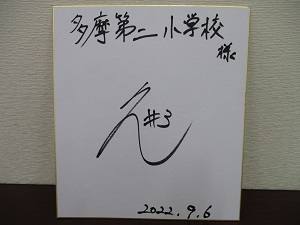 多摩第二小学校
様
#3
2022.9.6